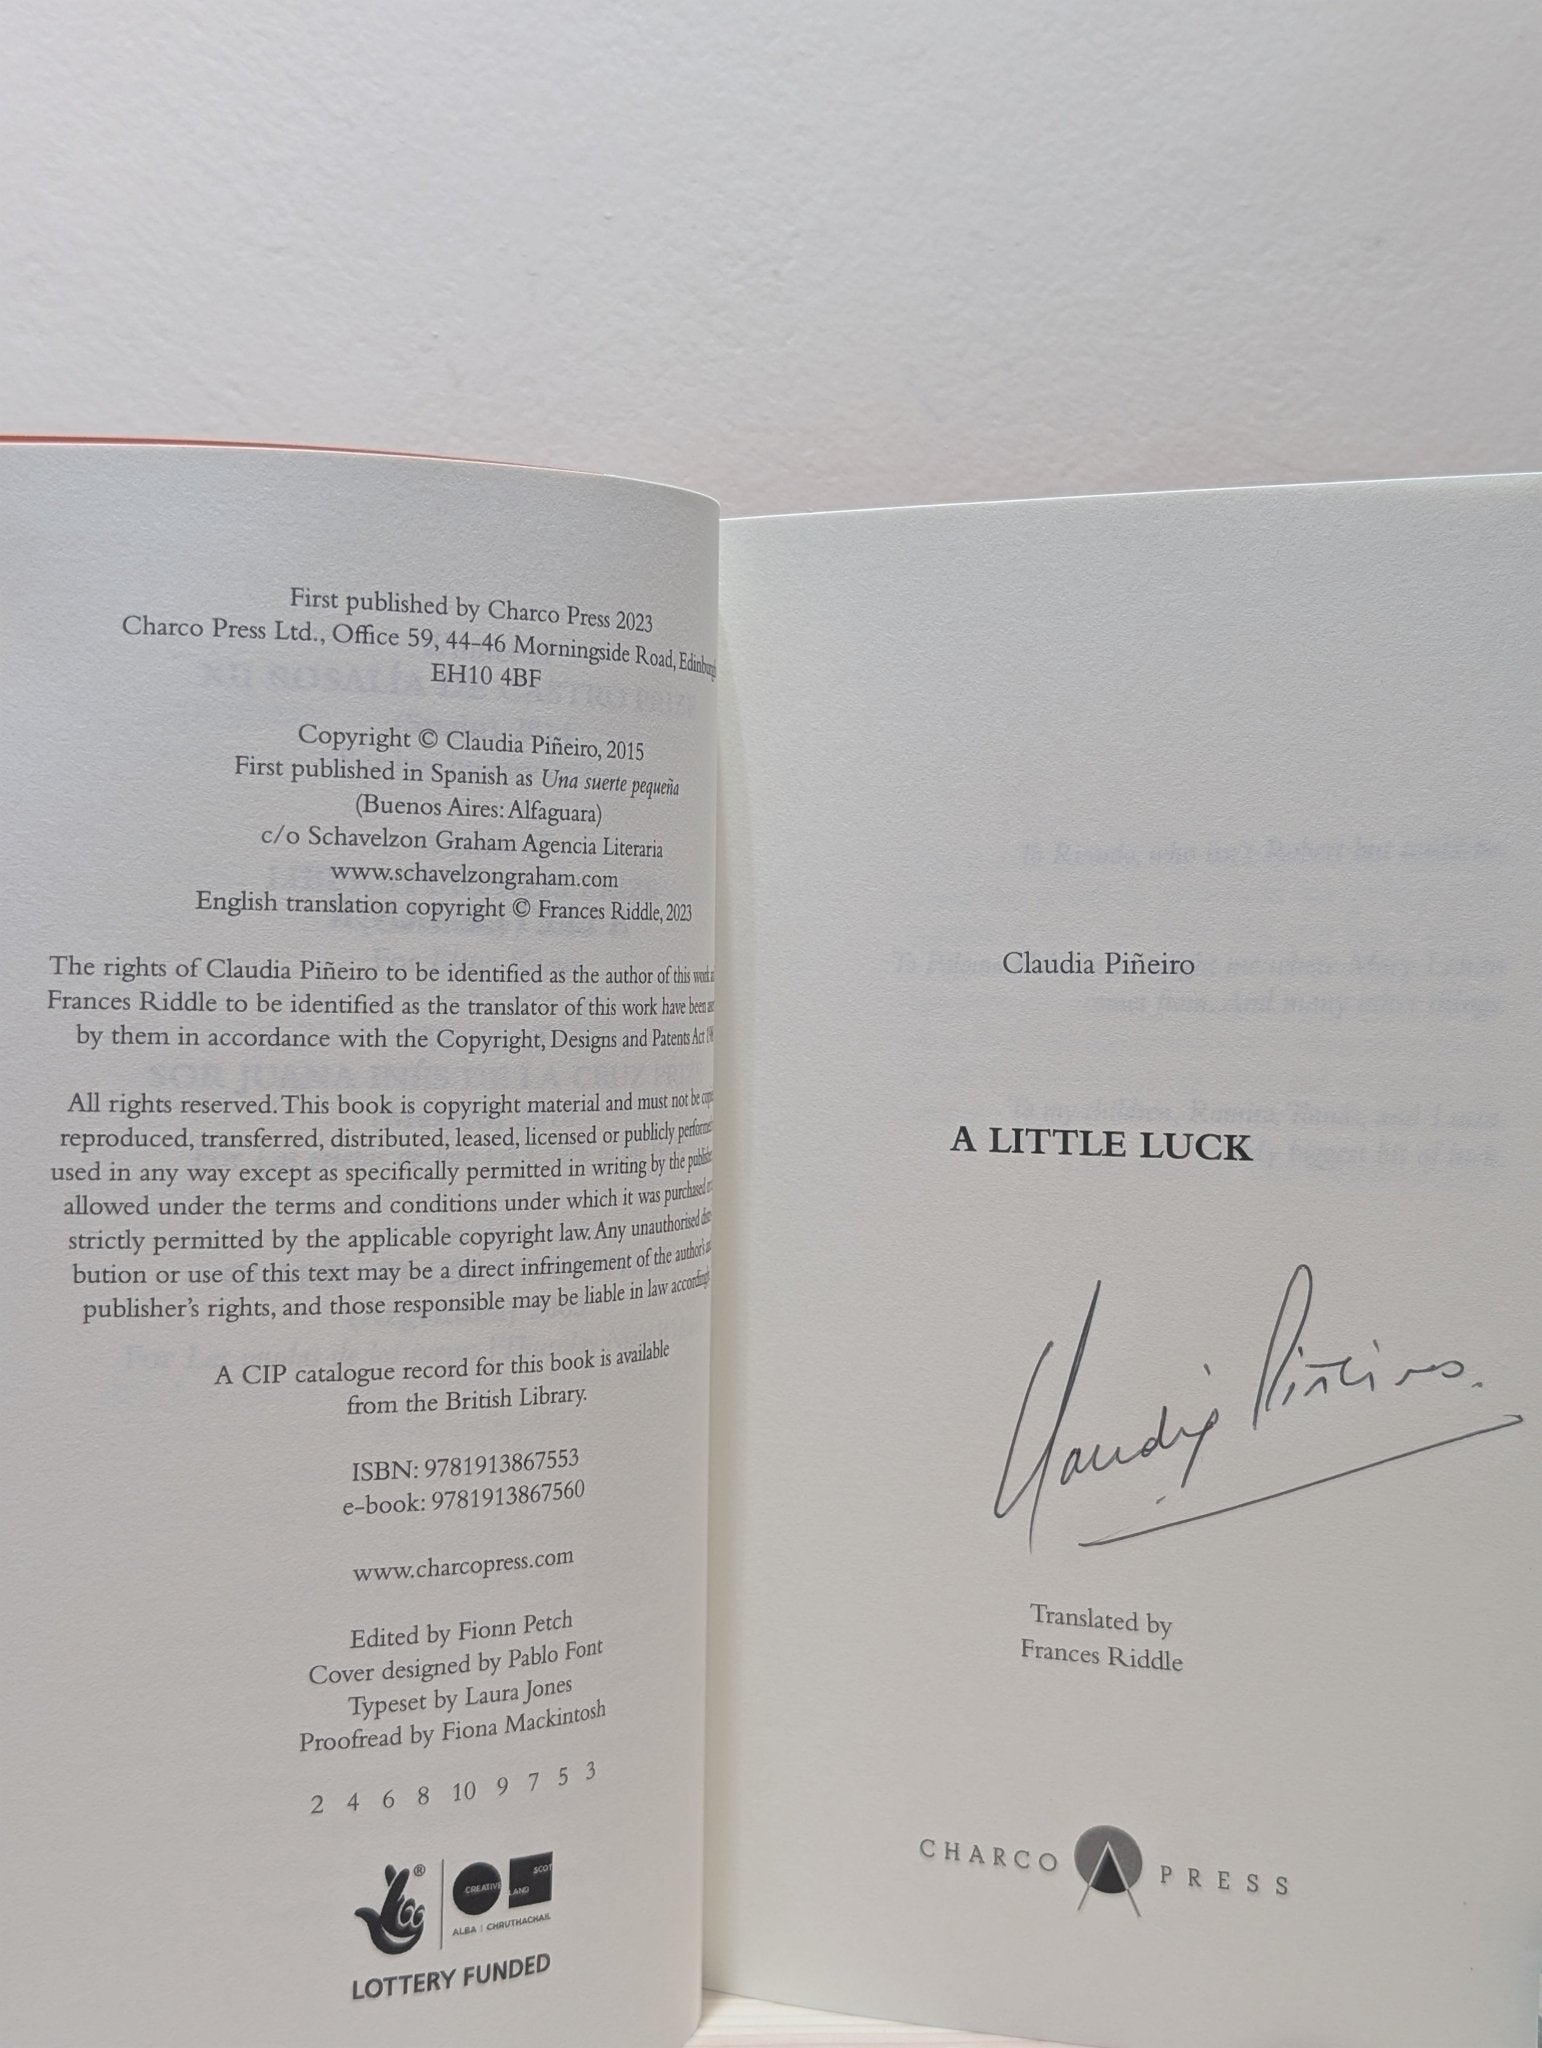 First published by Charco Press 2023
Charco Press Ltd., Office 59, 44-46 Morningside Road, Edinburgh
EH10 4BF
Copyright © Claudia Piñeiro, 2015
First published in Spanish as Una suerte pequeña
(Buenos Aires: Alfaguara)
c/o Schavelzon Graham Agencia Literaria
www.schavelzongraham.com
English translation copyright © Frances Riddle, 2023
The rights of Claudia Piñeiro to be identified as the author of this work
Frances Riddle to be identified as the translator of this work have been
by them in accordance with the Copyright, Designs and Patents Act
All rights reserved. This book is copyright material and must not be
reproduced, transferred, distributed, leased, licensed or publicly
used in any way except as specifically permitted in writing by the
allowed under the terms and conditions under which it was purchased
strictly permitted by the applicable copyright law. Any unauthorised
bution or use of this text may be a direct infringement of the author's
publisher's rights, and those responsible may be liable in law
A CIP catalogue record for this book is available
from the British Library.
ISBN: 9781913867553
e-book: 9781913867560
www.charcopress.com
Edited by Fionn Petch
Cover designed by Pablo Font
Typeset by Laura Jones
Proofread by Fiona Mackintosh
2 4 6 8 10 9 7 5 3
®
CREATIVE SCOT
LAND
ALBA | CHRUTHACHAIL
LOTTERY FUNDED
Claudia Piñeiro
A LITTLE LUCK
Claudia Piñeiro.
Translated by
Frances Riddle
CHARCO PRESS